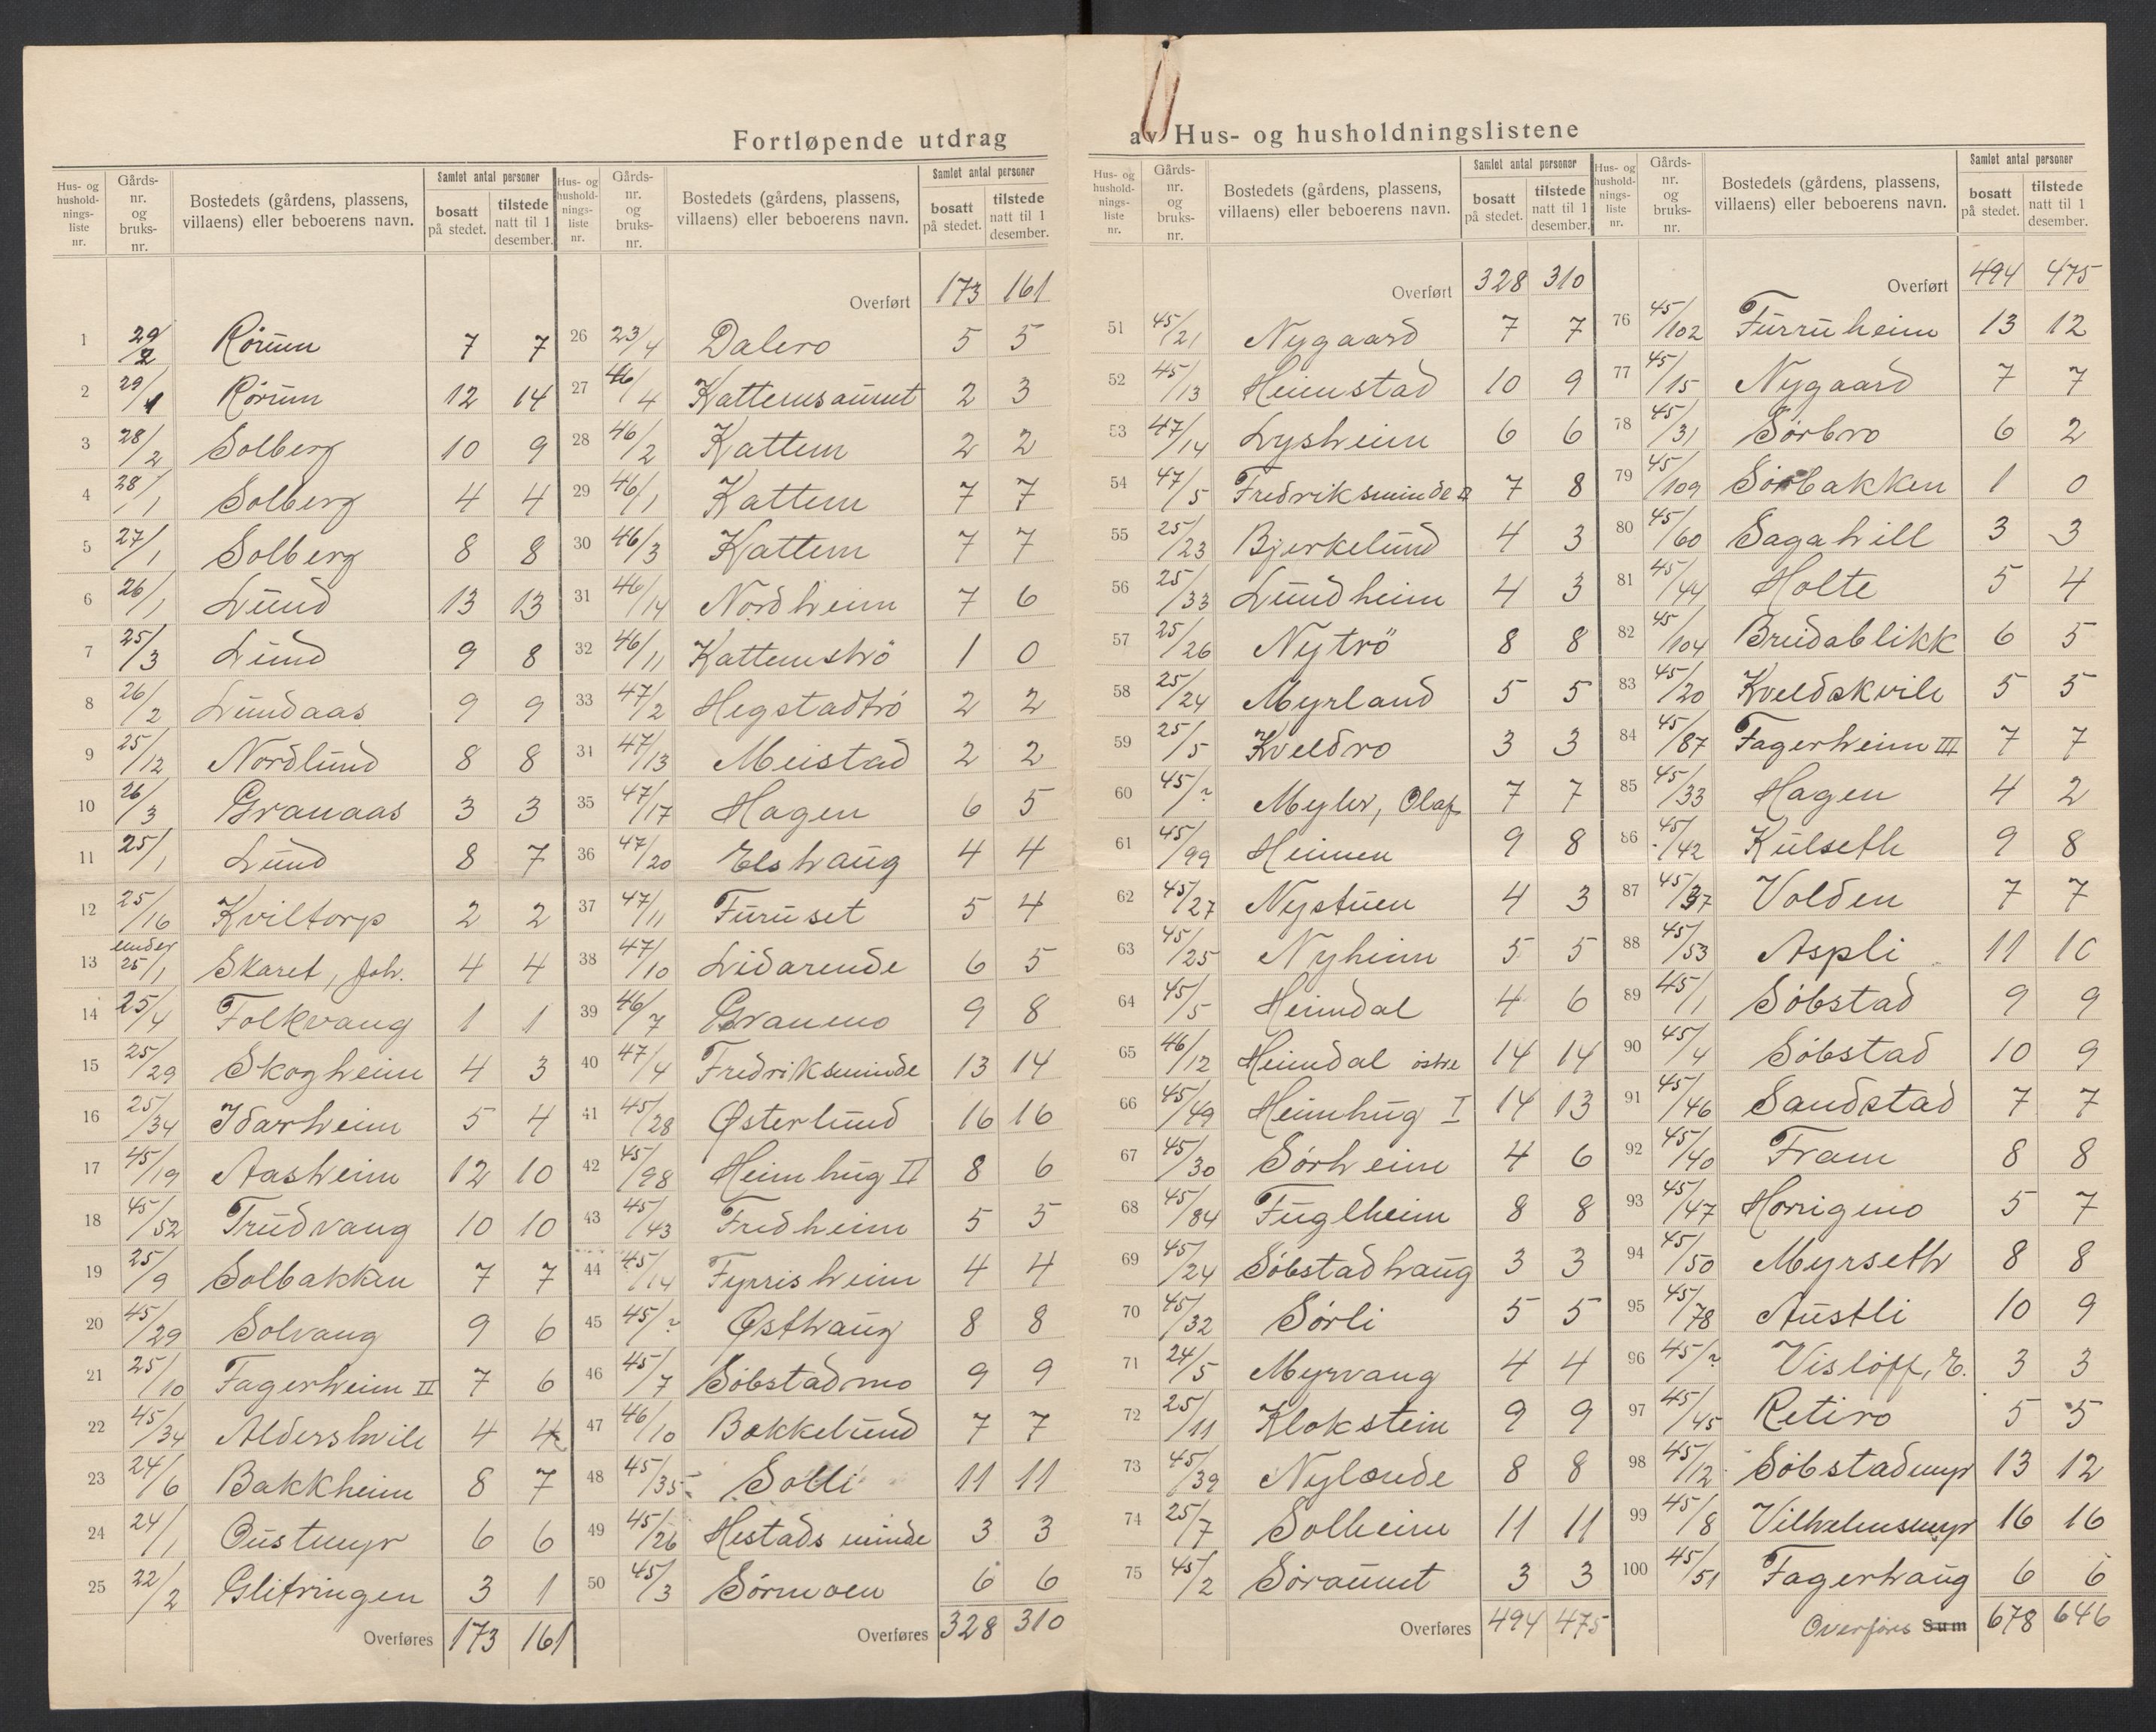 Fortløpende utdrag
av Hus- og husholdningslistene
Hus- og husholdnings-liste nr. | Gårds-nr. og bruks-nr. | Bostedets (gårdens, plassens, villaens) eller beboerens navn. | Samlet antal personer bosatt på stedet. | tilstede natt til 1 desember.
1 29/2 Rörum 7 7
2 29/1 Rörum 12 14
3 28/2 Solberg 10 9
4 28/1 Solberg 4 4
5 27/1 Solberg 8 8
6 26/1 Lund 13 13
7 25/3 Lund 9 8
8 26/2 Lundaas 9 9
9 25/12 Nordlund 8 8
10 26/3 Granaas 3 3
11 25/1 Lund 8 7
12 25/16 Kviltorp 2 2
13 under 25/1 Skaret, Joh. 4 4
14 25/4 Folkvang 1 1
15 25/29 Skogheim 4 3
16 25/34 Idarheim 5 4
17 45/19 Aasheim 12 10
18 45/52 Trudvang 10 10
19 25/9 Solbakken 7 7
20 45/29 Solvang 9 6
21 25/10 Fagerheim II 7 6
22 45/34 Aldershvile 4 4
23 24/6 Bakkheim 8 7
24 24/1 Oustmyr 6 6
25 22/2 Glitringen 3 1
Overføres 173 161
Hus- og husholdnings-liste nr. | Gårds-nr. og bruks-nr. | Bostedets (gårdens, plassens, villaens) eller beboerens navn. | Samlet antal personer bosatt på stedet. | tilstede natt til 1 desember.
Overført 173 161
26 23/4 Dalero 5 5
27 46/4 Kattemsaunet 2 3
28 46/2 Kattem 2 2
29 46/1 Kattem 7 7
30 46/3 Kattem 7 7
31 46/14 Nordheim 7 6
32 46/11 Kattemströ 1 0
33 47/2 Hegstadtrö 2 2
34 47/13 Meistad 2 2
35 47/17 Hagen 6 5
36 47/20 Elshaug 4 4
37 47/11 Furuset 5 4
38 47/10 Lidarende 6 5
39 46/7 Granmo 9 8
40 47/4 Fredriksminde 13 14
41 45/28 Østerlund 16 16
42 45/98 Heimhug II 8 6
43 45/43 Fredheim 5 5
44 45/14 Fyrrisheim 4 4
45 45/? Østhaug 8 8
46 45/7 Söbstadmo 9 9
47 46/10 Bakkelund 7 7
48 45/35 Solli 11 11
49 45/26 Hestads minde 3 3
50 45/3 Sörmoen 6 6
Overføres 328 310
Hus- og husholdnings-liste nr. | Gårds-nr. og bruks-nr. | Bostedets (gårdens, plassens, villaens) eller beboerens navn. | Samlet antal personer bosatt på stedet. | tilstede natt til 1 desember.
Overført 328 310
51 45/21 Nygaard 7 7
52 45/13 Heimstad 10 9
53 47/14 Lysheim 6 6
54 47/5 Fredriksminde II 7 8
55 25/23 Bjerkelund 4 3
56 25/33 Lundheim 4 3
57 25/26 Nytrö 8 8
58 25/24 Myrland 5 5
59 25/5 Kveldro 3 3
60 45/? Myhr, Olaf 7 7
61 45/99 Heimen 9 8
62 45/27 Nystuen 4 3
63 45/25 Nyheim 5 5
64 45/5 Heimdal 4 6
65 46/12 Heimdal östre 14 14
66 45/49 Heimhug I 14 13
67 45/30 Sörheim 4 6
68 45/84 Fuglheim 8 8
69 45/24 Söbstadhaug 3 3
70 45/32 Sörli 5 5
71 24/5 Myrvang 4 4
72 25/11 Klokstein 9 9
73 45/39 Nylænde 8 8
74 25/7 Solheim 11 11
75 45/2 Söraunet 3 3
Overføres 494 475
Hus- og husholdnings-liste nr. | Gårds-nr. og bruks-nr. | Bostedets (gårdens, plassens, villaens) eller beboerens navn. | Samlet antal personer bosatt på stedet. | tilstede natt til 1 desember.
Overført 494 475
76 45/102 Furruheim 13 12
77 45/15 Nygaard 7 7
78 45/31 Sörbro 6 2
79 45/109 Sörbakken 1 0
80 45/60 Sagahill 3 3
81 45/44 Holte 5 4
82 45/104 Breidablikk 6 5
83 45/20 Kveldskvile 5 5
84 45/87 Fagerheim III 7 7
85 45/33 Hagen 4 2
86 45/42 Kulseth 9 8
87 45/37 Volden 7 7
88 45/53 Aspli 11 10
89 45/1 Söbstad 9 9
90 45/4 Söbstad 10 9
91 45/46 Sandstad 7 7
92 45/40 Fram 8 8
93 45/47 Horrigmo 5 7
94 45/50 Myrseth 8 8
95 45/78 Austli 10 9
96 45/? Vislöff, E. 3 3
97 45/45 Retiro 5 5
98 45/12 Söbstadmyr 13 12
99 45/8 Vilhelmsmyr 16 16
100 45/51 Fagerhaug 6 6
Overføres Sum 678 646